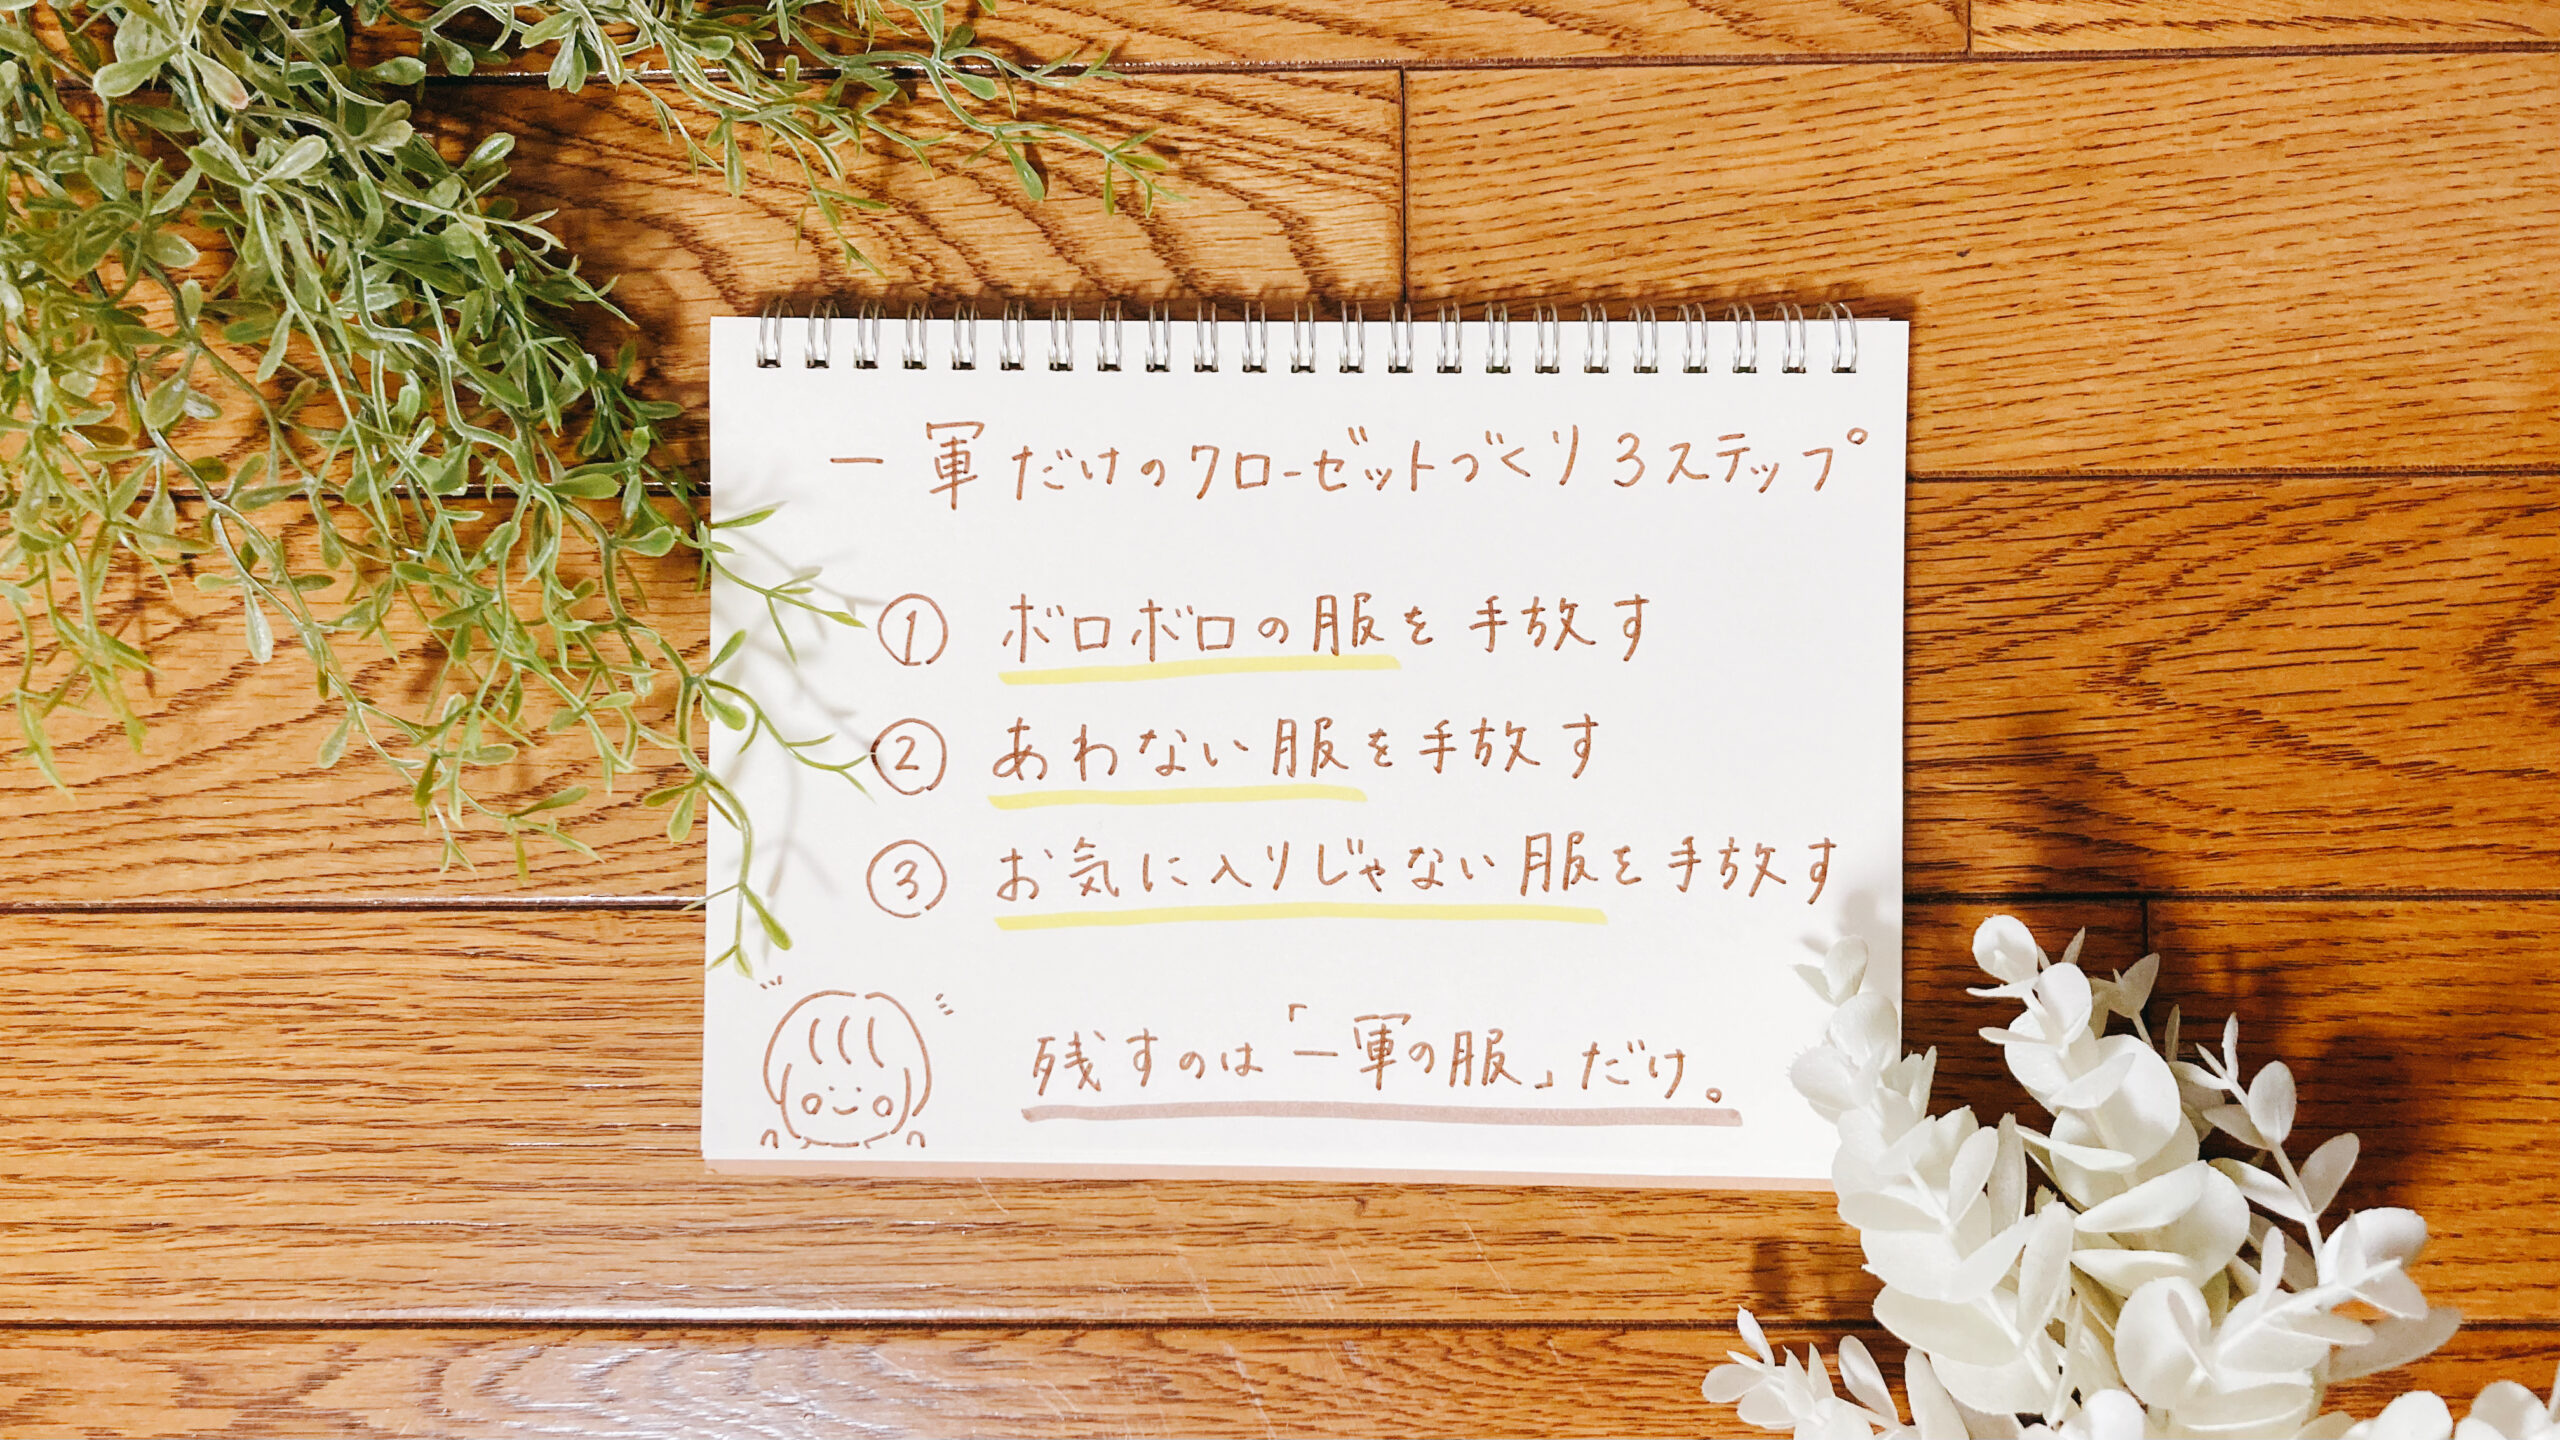 一軍だけのクローゼットづくり3ステップ
① ボロボロの服を手放す
② あわない服を手放す
③ お気に入りじゃない服を手放す
残すのは「一軍の服」だけ。